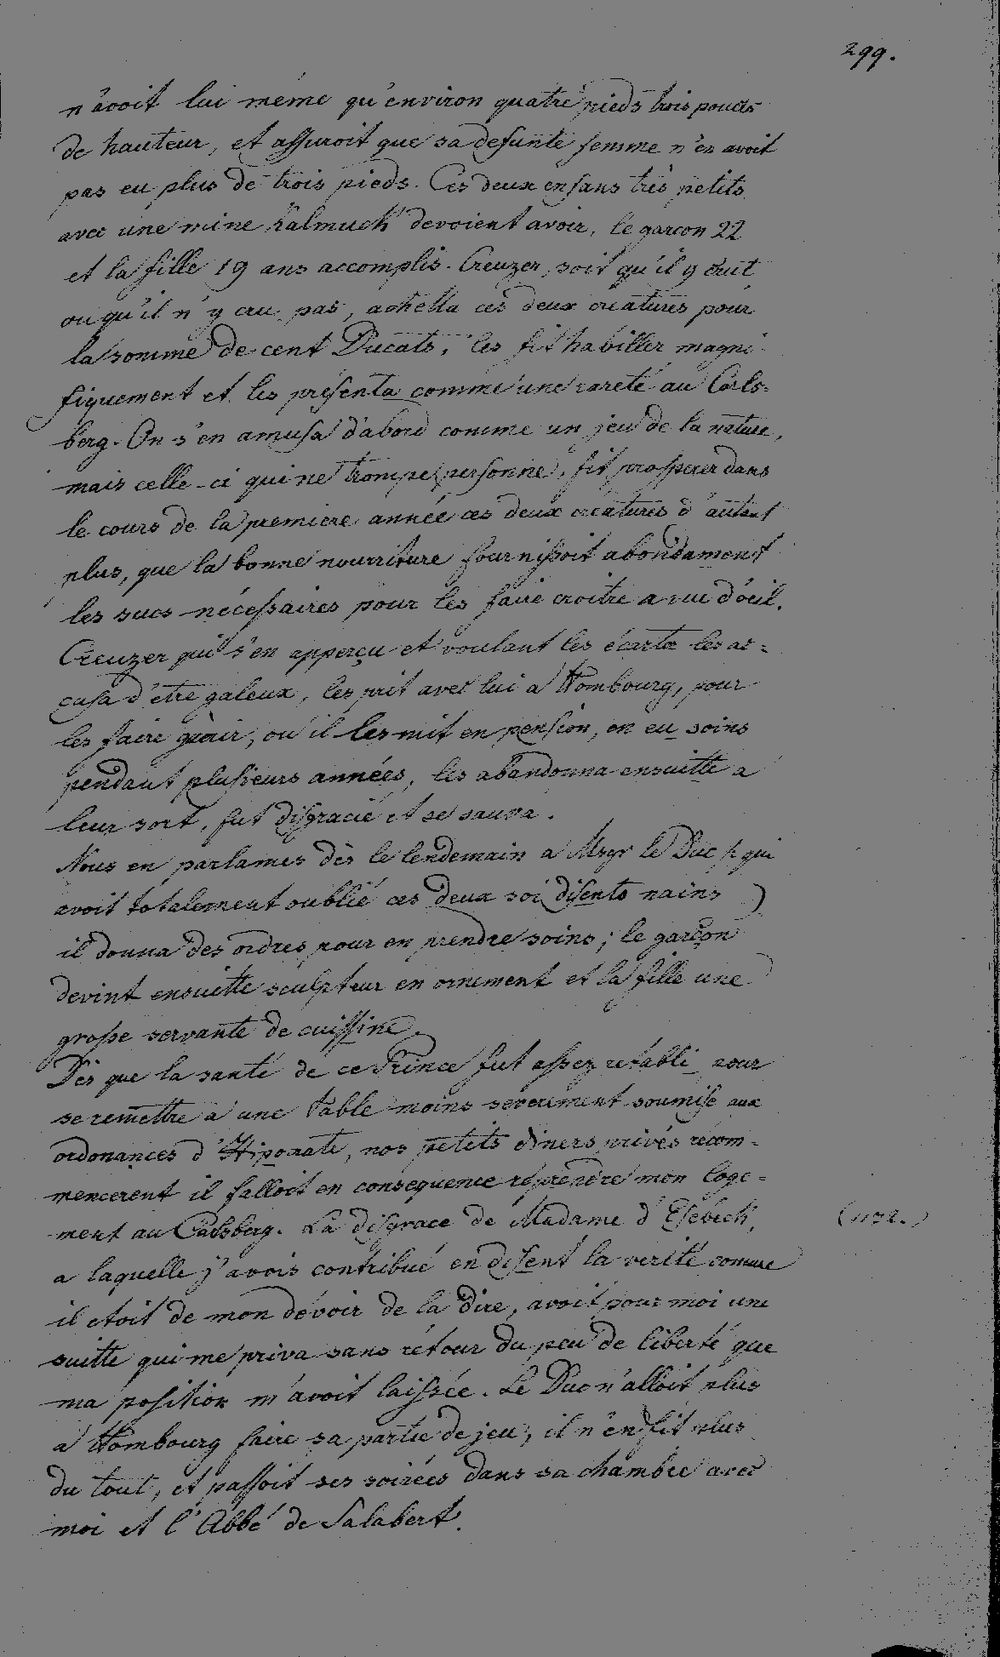 299.
n'avoit lui même qu'environ quatre pieds trois pouces
de hauteur, et assuroit que sa defunte femme n'en avoit
pas eu plus de trois pieds. Ces deux enfans très petits
avec une mine Kalmuck devoient avoir, le garcon 22
et la fille 19 ans accomplis. Creuzer, soit qu'il y crut
ou qu'il n'y cru pas, achetta ces deux creatures pour
la somme de cent Ducats, les fit habiller magni-
fiquement et les présenta comme une rareté au Carls-
berg. On s'en amusa d'abord comme un jeu de la nature,
mais celle-ci qui ne trompe personne, fit prosperer dans
le cours de la premiere année ces deux creatures d'autant
plus, que la bonne nourriture fournissoit abondament
les sucs nécessaires pour les faire croitre a vue d'oeil.
Creuzer qui s'en apperçu et voulant les écarter les ac=
cusa d'etre galeux, les prit avec lui a Hombourg, pour
les faire guérir, ou il les mit en pension, en eu soins
pendant plusieurs années, les abandonna ensuitte a
leur sort, fut disgracié et se sauva.
Nous en parlames dès le lendemain a Msgr le Duc /: qui
avoit totalement oublié ces deux soi disents nains )
il donna des ordres pour en prendre soins; le garçon
devint ensuitte sculpteur en ornement et la fille une
grosse servante de cuissine.
Dès que la santé de ce Prince fut assez retabli pour
se remettre a une table moins severement soumise aux
ordonances d'Hipocrate, nos petits diners privés recom-
mencerent il falloit en consequence reprendre mon loge-
ment au Carlsberg. La disgrace de Madame d'Esebeck,
(1192.)
a laquelle j'avois contribué en disent la verité comme
il etoit de mon devoir de la dire, avoit pour moi une
suitte qui me priva sans retour du peu de liberté que
ma position m'avoit laissée. Le Duc n'alloit plus
a Hombourg faire sa partie de jeu, il n'en fit plus
du tout, et passoit ses soirées dans sa chambre avec
moi et l'Abbé de Salabert.